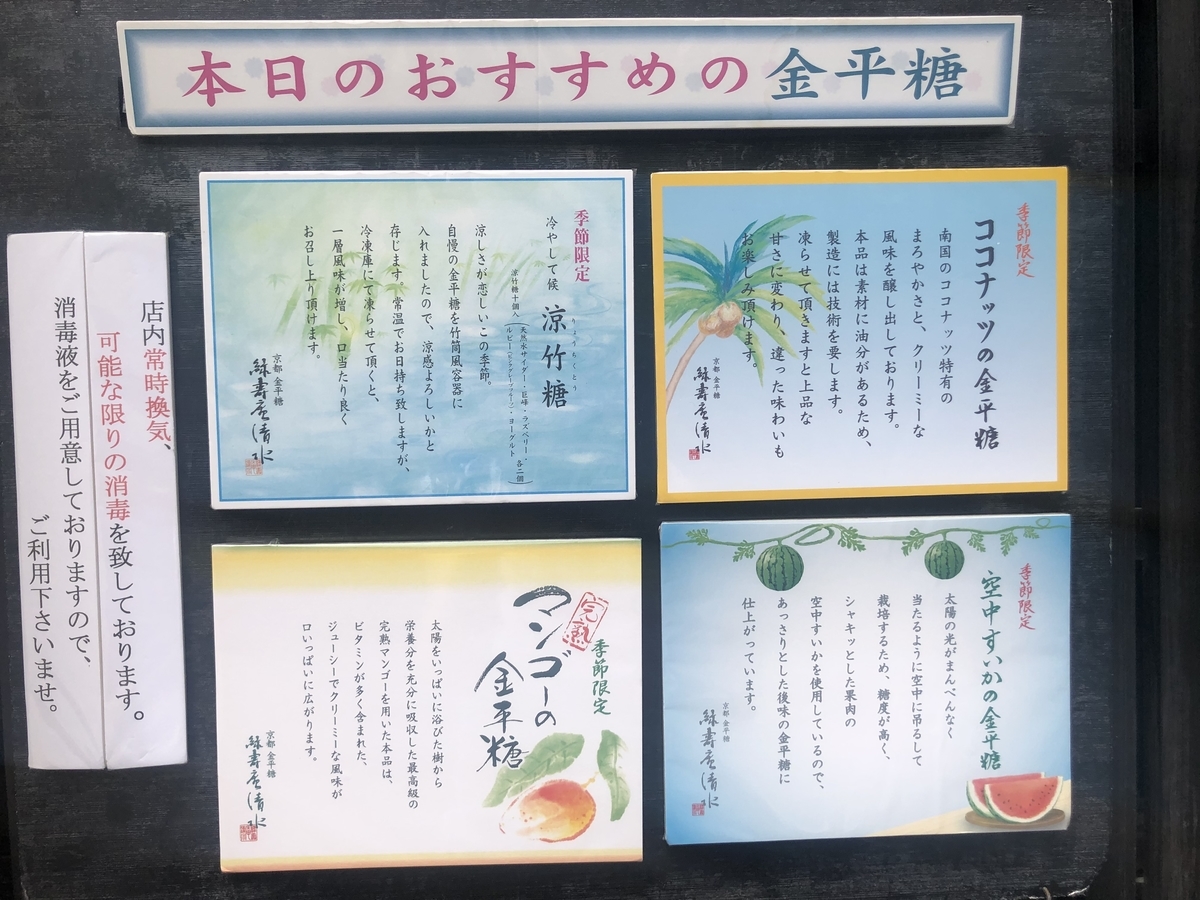 本日のおすすめの金平糖
季節限定
ココナッツの金平糖
南国のココナッツ特有の
まろやかさと、クリーミーな
風味を醸し出しております。
本品は素材に油分があるため、
製造には技術を要します。
凍らせて頂きますと上品な
甘さに変わり、違った味わいも
お楽しみ頂けます。
京都 金平糖
緑壽庵清水
季節限定
冷やして候 涼竹糖
りょうちくとう
涼竹糖十個入
天然水サイダー・巨峰・ラズベリー・
ヨーグルト 各二個
涼しさが恋しいこの季節。
自慢の金平糖を竹筒風容器に
入れましたので、涼感よろしいかと
存じます。常温でお日持ち致しますが、
冷凍庫にて凍らせて頂くと、
一層風味が増し、口当たり良く
お召し上り頂けます。
京都 金平糖
緑壽庵清水
季節限定
空中すいかの金平糖
太陽の光がまんべんなく
当たるように空中に吊るして
栽培するため、糖度が高く、
シャキッとした果肉の
空中すいかを使用しているので、
あっさりとした後味の金平糖に
仕上がっています。
京都 金平糖
緑壽庵清水
季節限定
完熟
マンゴーの
金平糖
太陽をいっぱいに浴びた樹から
栄養分を充分に吸収した最高級の
完熟マンゴーを用いた本品は、
ビタミンが多く含まれた、
ジューシーでクリーミーな風味が
口いっぱいに広がります。
京都 金平糖
緑壽庵清水
店内常時換気、
可能な限りの消毒を致しております。
消毒液をご用意しておりますので、
ご利用下さいませ。